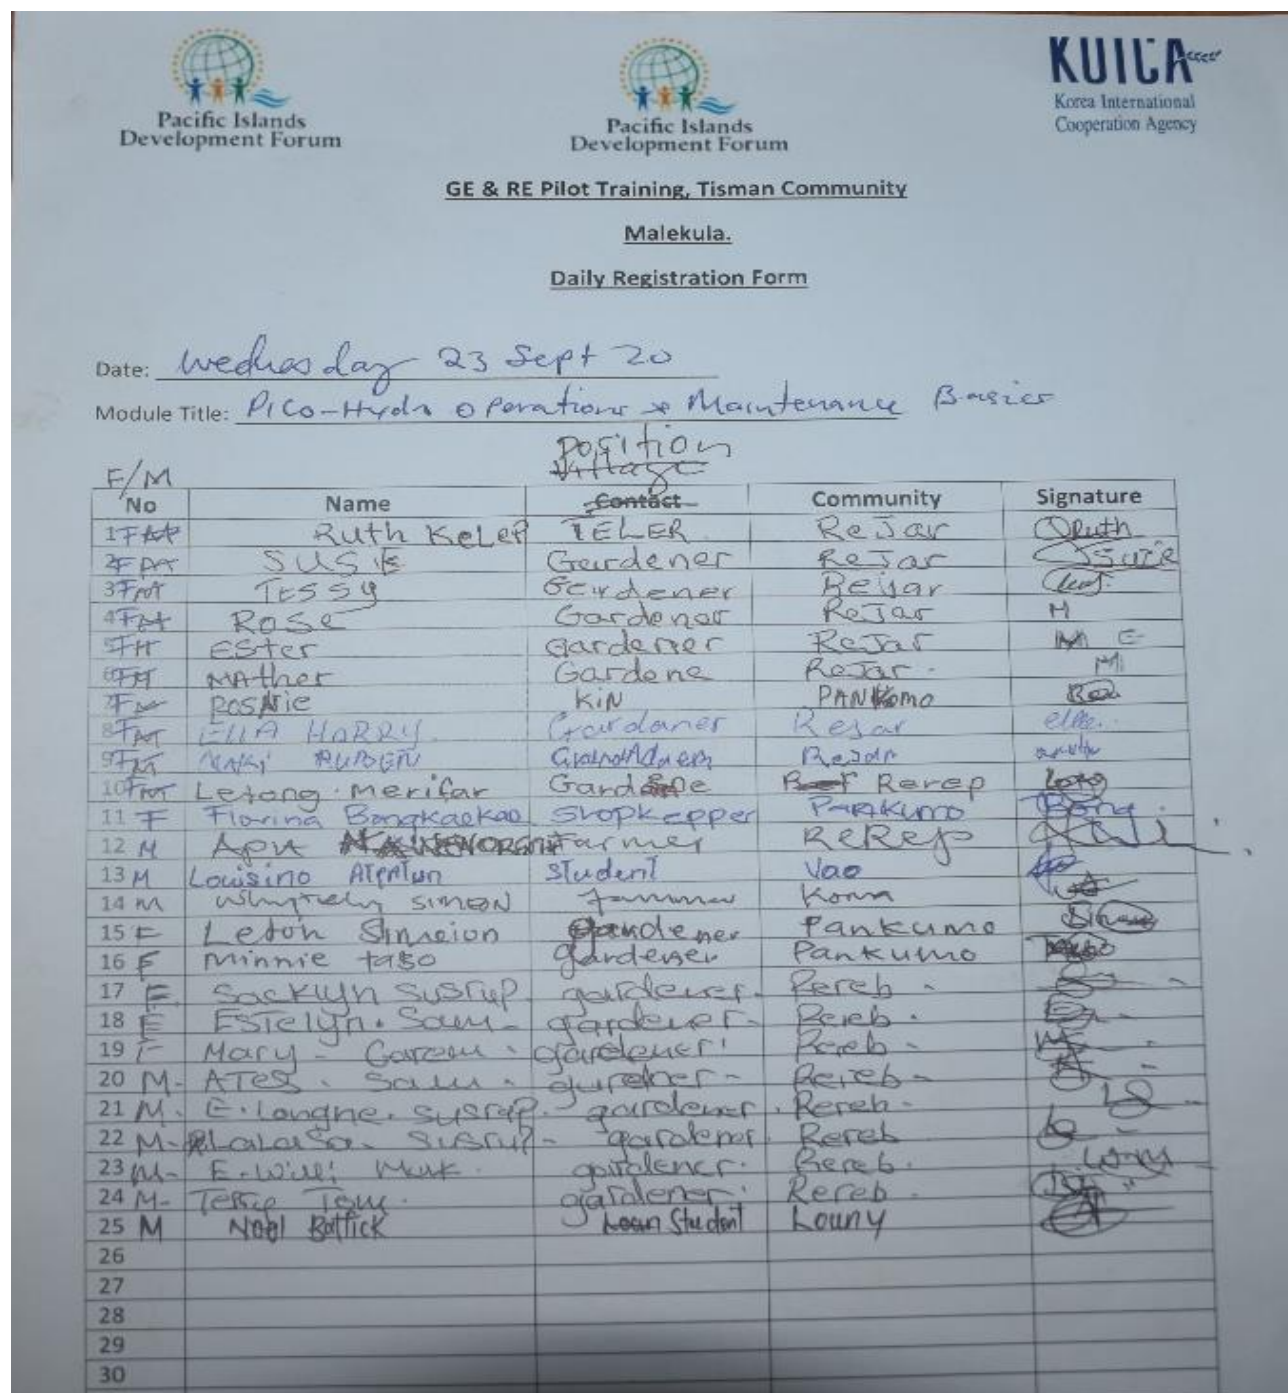 Pacific Islands
Development Forum
Pacific Islands
Development Forum
KOICA
Korea International
Cooperation Agency
GE & RE Pilot Training, Tisman Community
Malekula.
Daily Registration Form
Date: Wednesday 23 Sept 20
Module Title: Pico-Hydro Operations & Maintenance Basics
Position
Village
F/M
No Name Contact Community Signature
1 F Ruth Kelep TELER ReJar Ruth
2 F SUSIE Gardener ReJar Suzie
3 F TESSY Gerdener Rejar
4 F Rose Gardener ReJar M
5 F Ester Gardener ReJar M E
6 F MAther Gardene ReJar. M
7 F ROSARIE KIN PANKomo
8 F ELLA HARRY. Gardaner Rejar elle.
9 F RUBEN Rejar
10 F Letang. merifar Rerep
11 F Florina Bongkaekae shopkepper Pankumo Bong
12 M Apu Farmer ReRep
13 M Louisino student Vao
14 M SIMEON
15 F Leton Simeion gandener Pankumo
16 F Minnie taso gardener Pankumo
17 F Sacklyn susrup gardener. Rereb -
18 F Estelyn. Sam - gardener - Rereb .
19 F Mary - gardener Rereb -
20 M- ATess . Sam . gardener - Rereb -
21 M. E. Langne. susrup. - gardener. Rereb -
22 M- LaLaSa. susrup - gardener. Rereb
23 M- E. Willi Mark. gardener. Rereb.
24 M- Tom. gardener. Rereb.
25 M Noel Battick Student Louny
26
27
28
29
30